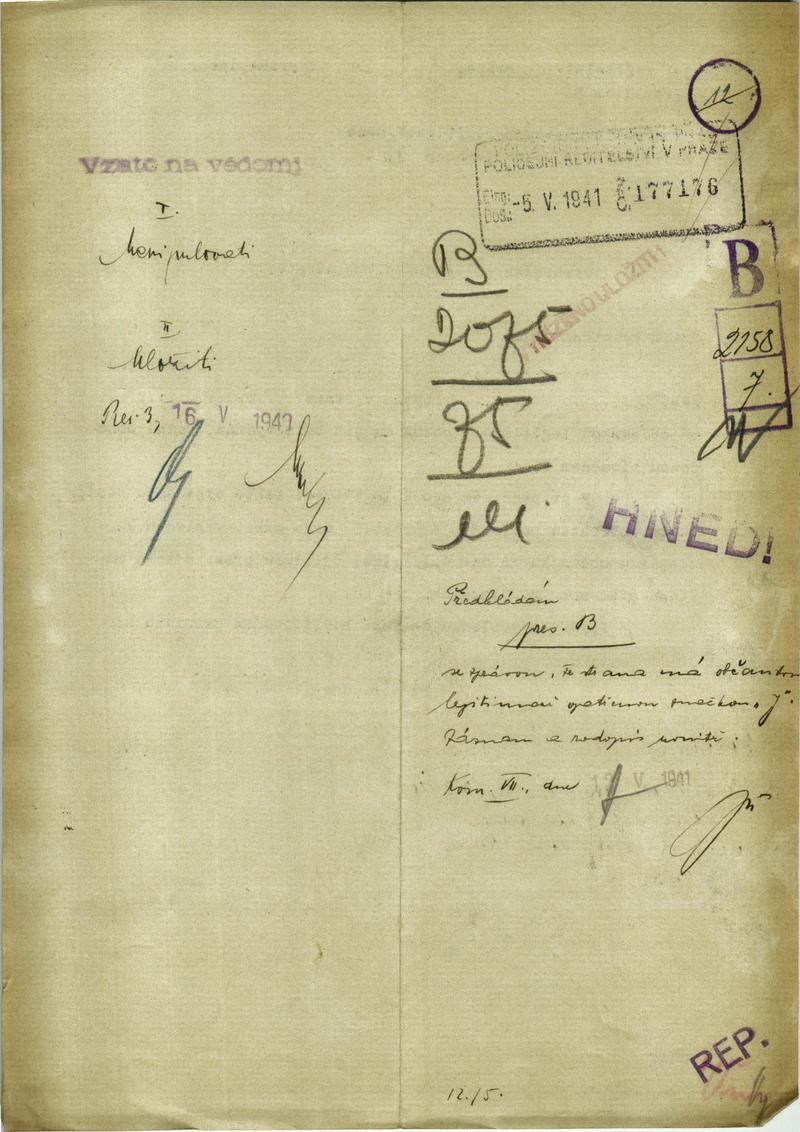 Vzato na vědomí
I.
Manipulovati
II
Uložiti
Res. 3, 16 V 1941
12
POLICEJNÍ ŘEDITELSTVÍ V PRAZE
Došl.: -5. V. 1941 Č. 177176
B
2075
75
B
2158
7.
NALÉZÁNO ULOŽITI!
HNED!
Předkládám
pres. B
se zprávou, že strana má občanskou
legitimaci opatřenou značkou „J".
Záznam a rodopis uvnitř.
Kom. VII., dne 12 V. 1941
REP.
12./5.